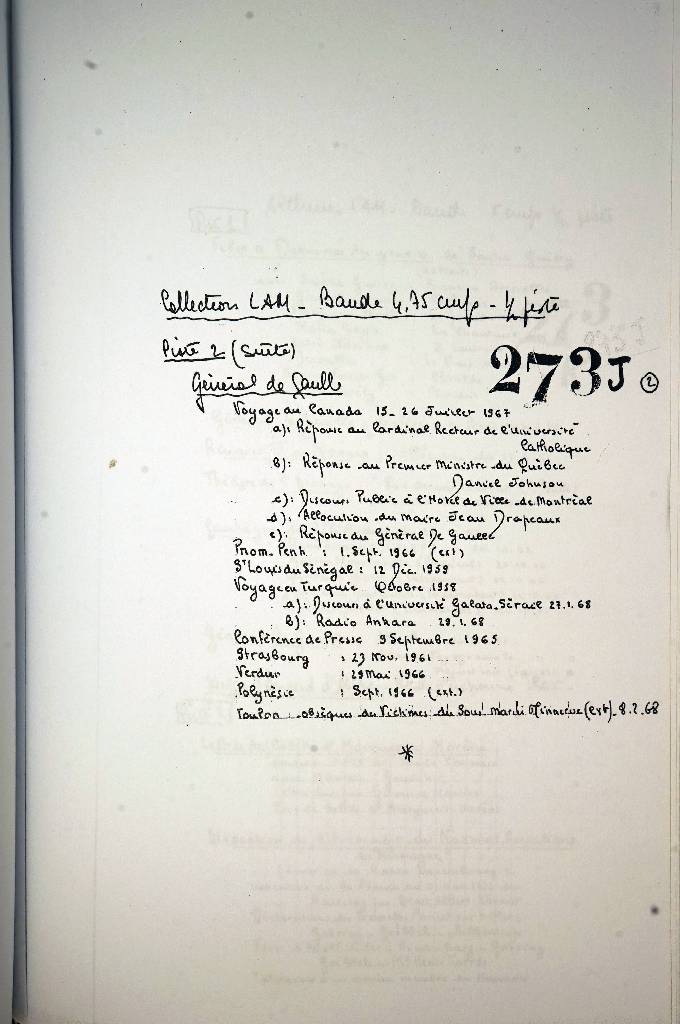 Collection LAM - Bande 4,75 cm/s - 1/2 piste
Piste 2 (Suite)
273J ②
Général de Gaulle
Voyage au Canada 15-26 Juillet 1967
a): Réponse au Cardinal Recteur de l'Université
Catholique
b): Réponse au Premier Ministre du Québec
Daniel Johnson
c): Discours Public à l'Hotel de Ville de Montréal
d): Allocution du maire Jean Drapeaux
e): Réponse du Général De Gaulle
Pnom-Penh : 1. Sept. 1966 (ext)
St Louis du Sénégal : 12 Déc. 1959
Voyage en Turquie Octobre 1958
a): Discours à l'université Galata-Sérail 27.1.68
b): Radio Ankara 29.1.68
Conférence de Presse 9 Septembre 1965
Strasbourg : 23 Nov. 1961
Verdun : 29 Mai 1966
Polynésie : Sept. 1966 (ext.)
Toulon : obsèques des Victimes du Sous' Marin Minerve (ext) - 8.2.68